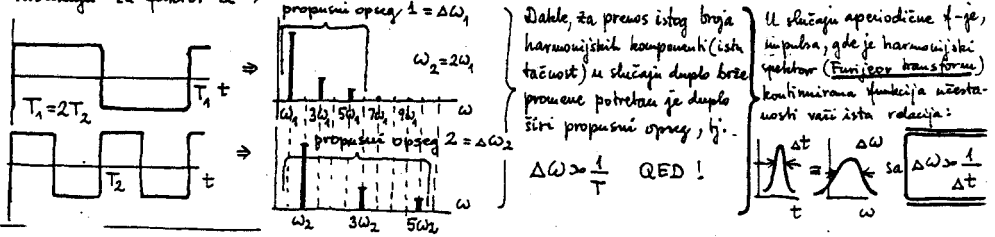 propusni opseg 1 = Δω₁
ω₂=2ω₁
T₁ t
T₁=2T₂
⇒
ω₁ 3ω₁ 5ω₁ 7ω₁ 9ω₁ ω
propusni opseg 2 = Δω₂
T₂ t
⇒
ω₂ 3ω₂ 5ω₂ ω
Dakle, za prenos istog broja
harmonijskih komponenti (ista
tačnost) u slučaju duplo brže
promene potreban je duplo
širi propusni opseg, tj.
Δω ∝ 1/T QED !
U slučaju aperiodične f-je,
impulsa, gde je harmonijski
spektar (Furijeov transform)
kontinuirana funkcija učesta-
nosti važi ista relacija:
Δt ≡ Δω sa Δω ∝ 1/Δt
t ω